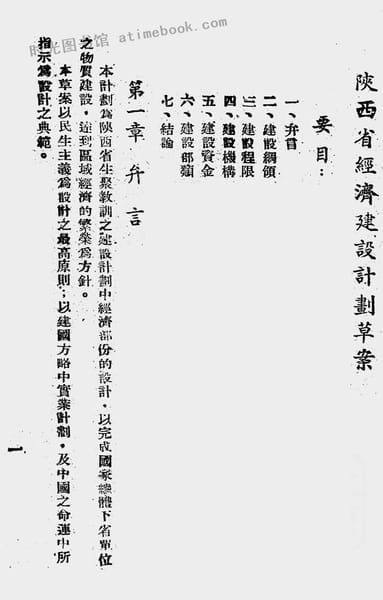 时光图书馆 atimebook.com
陝西省經濟建設計劃草案
要目：
一、弁言
二、建設綱領
三、建設程限
四、建設機構
五、建設資金
六、建設部類
七、結論
第一章 弁言
本計劃爲陝西省生聚敎訓之建設計劃中經濟部份的設計，以完成國家總體下省單位
之物質建設，達到區域經濟的繁榮爲方針。
本草案以民生主義爲設計之最高原則；以建國方略中實業計劃，及中國之命運中所
指示爲設計之典範。
一